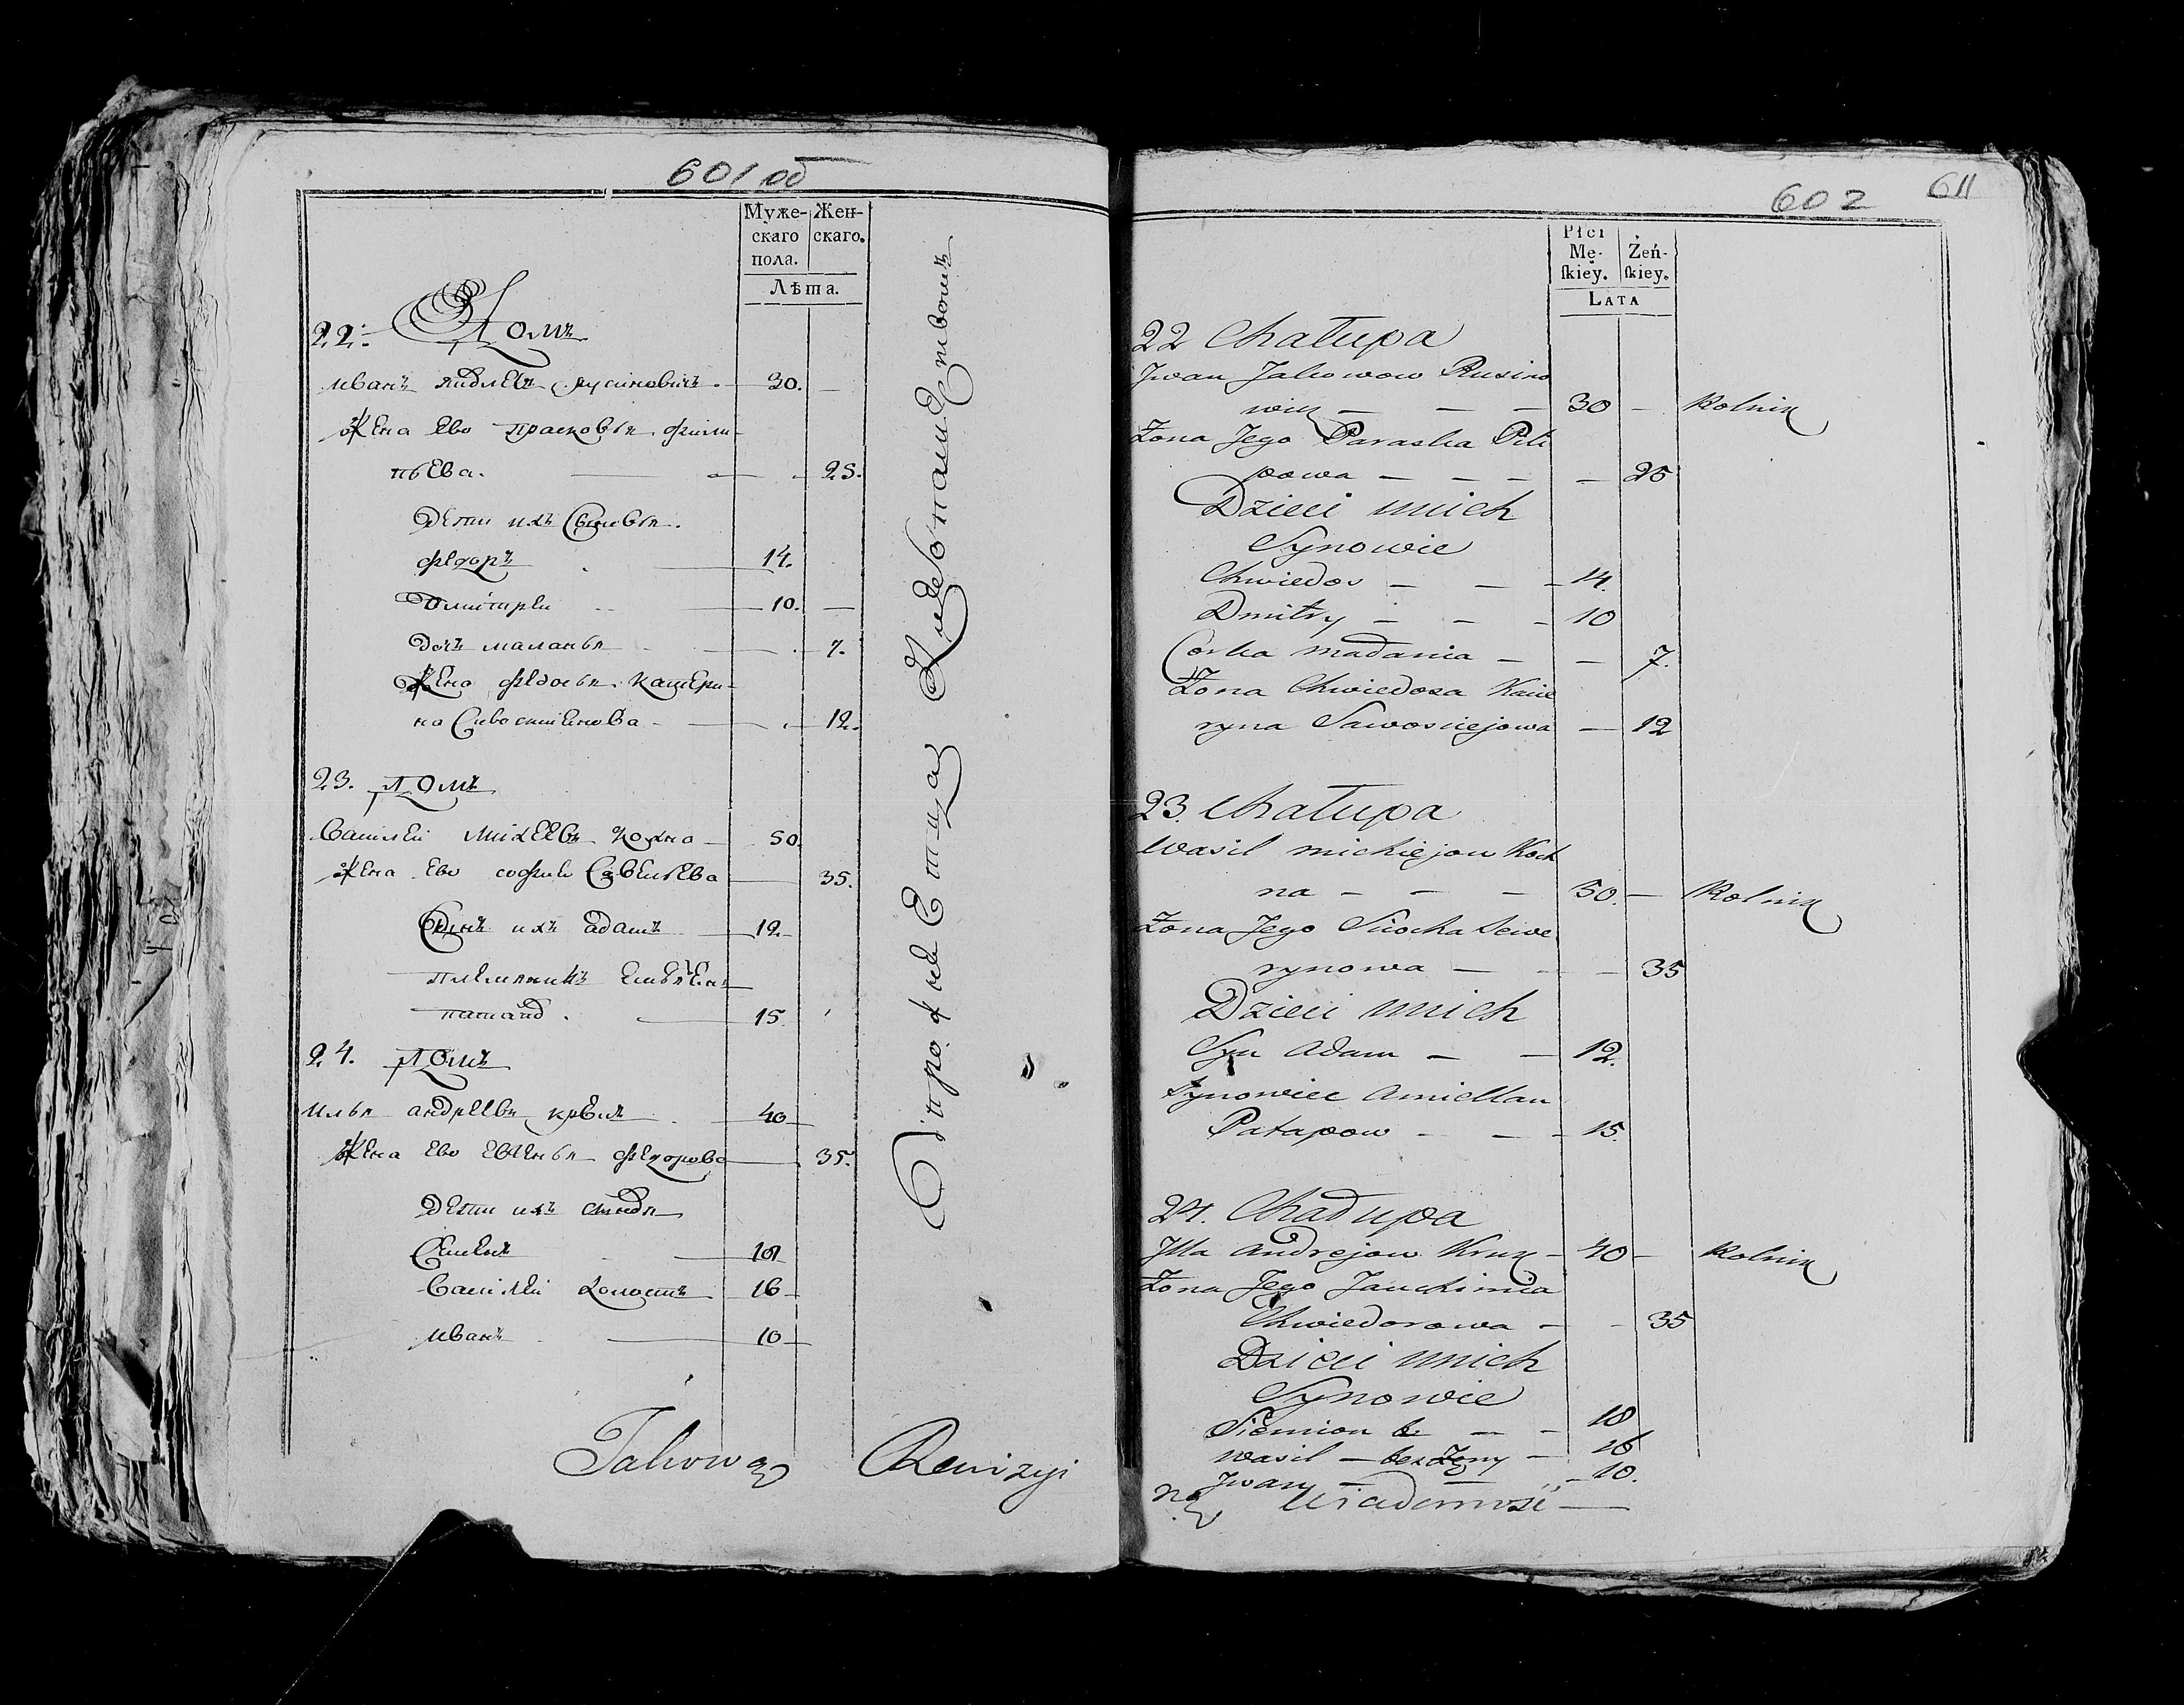 601 об
Муже-
скаго
пола.
Жен-
скаго.
Лѣта.
22. Домъ
иванъ яковлевъ русиновичъ 30.
Жена Ево прасковья фили-
пьева. 25.
Дети ихъ Сыновья.
федоръ 14.
Дмитреи 10.
Дочь маланья 7.
Жена федосья катери-
на Савостиенова 12.
23. Домъ
Василеи Михеевъ Кохно 50.
Жена Ево софия Савельева 35.
Сынъ ихъ адамъ 12.
племянникъ
15
24. Домъ
илья андреевъ 40
Жена Ево Евгенья федорова 35.
Дети ихъ
Семенъ 18
Василеи холостъ 16
иванъ 10
Takową Rewizyi
602
611
Płci
Mę-
skiey.
Żeń-
skiey.
LATA
22 Chałupa
Jwan Jakowow Rusino
wicz 30 Rolnik
Żona Jego Paraska Pili
powa 25
Dzieci unich
Synowie
Chwiedor 14.
Dmitry 10
Corka Madania 7.
Żona Chwiedora Kacie
ryna Sawosciejowa 12
23. Chałupa
Wasil Michiejow Koch
na 50. Rolnik
Żona Jego Sciocha Sewe
rynowa 35
Dzieci unich
Syn Adam 12.
Synowiec Amiellan
Patapow 15.
24. Chadupa
Jlla Andrejow Kruk 40 Rolnik
Żona Jego Jauchimia
Chwiedorowa 35
Dzieci unich
Synowie
Siemion 18
Wasil bez Żony 16
Jwan 10.
na Wiadomosć